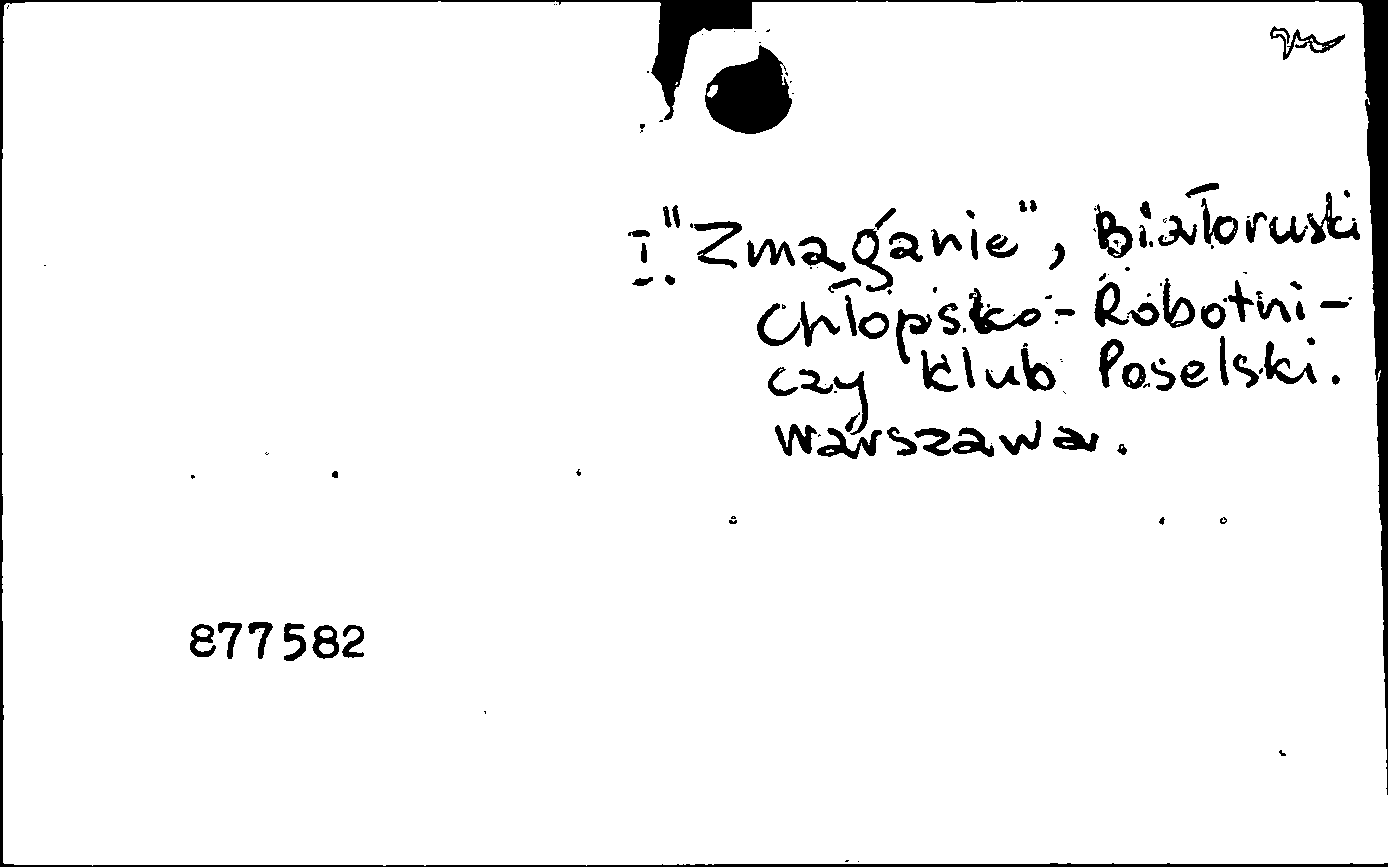 I. "Zmaganie", Białoruski
Chłopsko-Robotni-
czy klub Poselski.
Warszawa.
877582